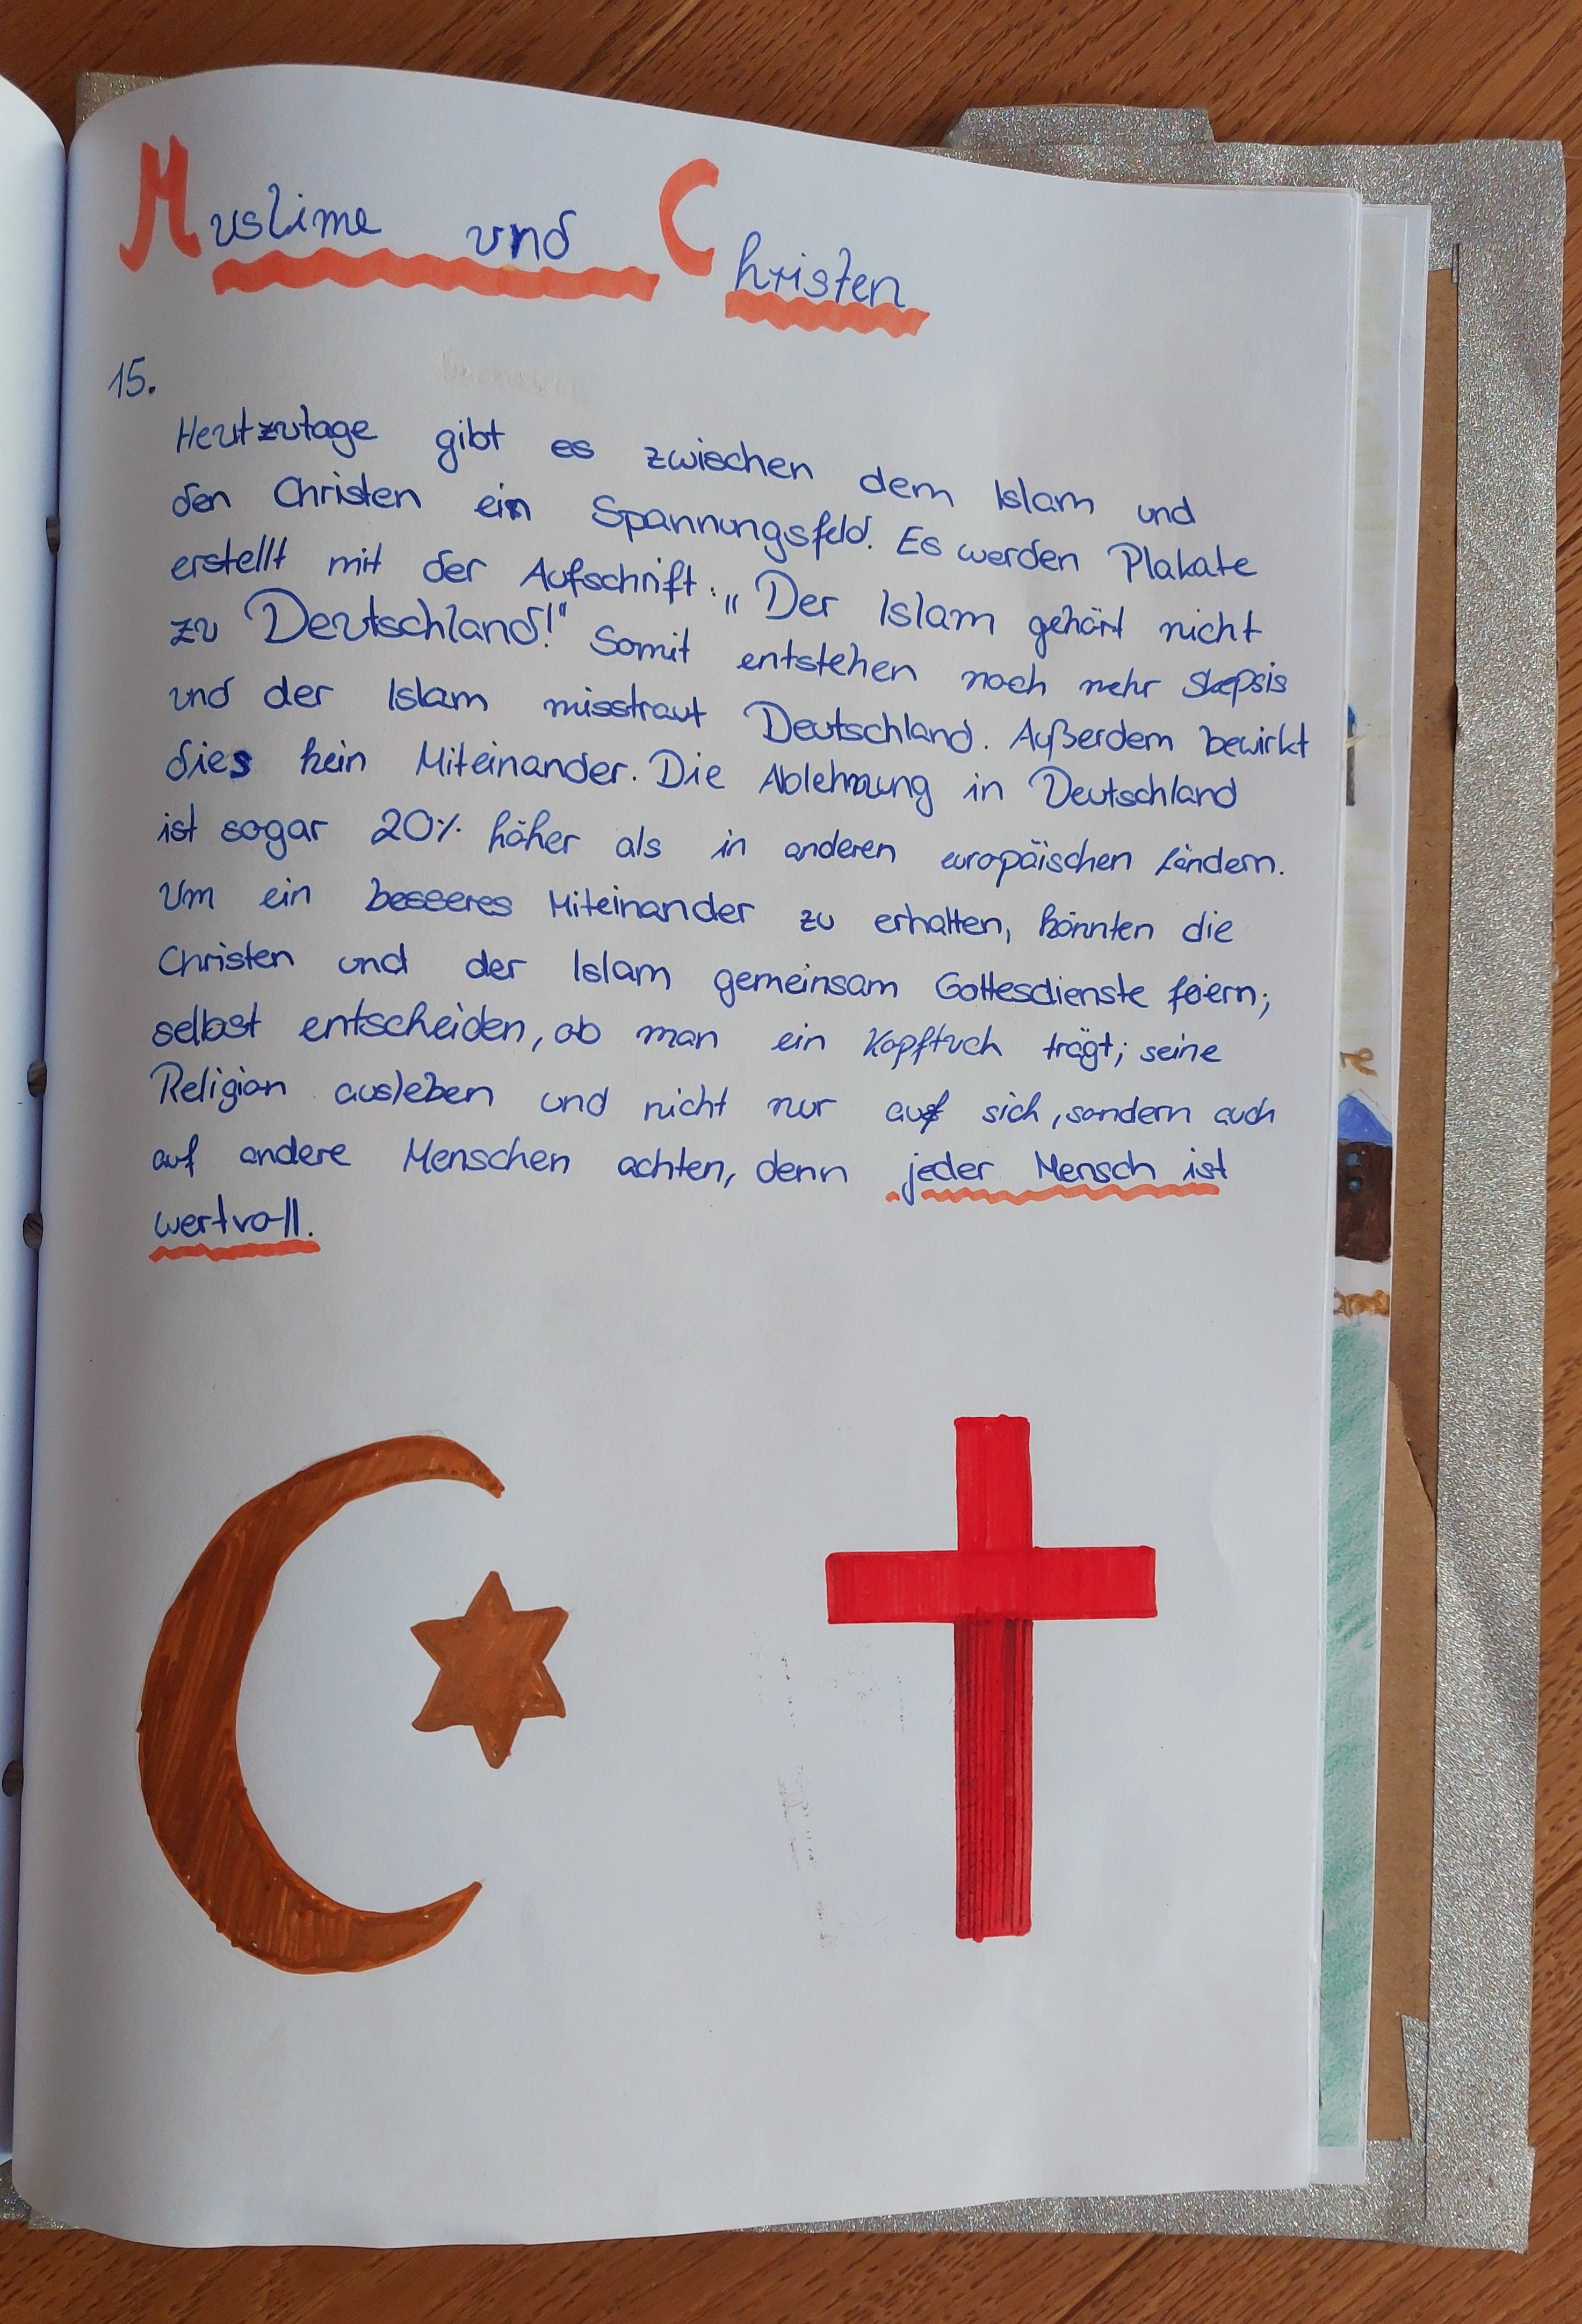 Muslime und Christen
15.
Heutzutage gibt es zwischen dem Islam und
den Christen ein Spannungsfeld. Es werden Plakate
erstellt mit der Aufschrift: „Der Islam gehört nicht
zu Deutschland!" Somit entstehen noch mehr Skepsis
und der Islam misstraut Deutschland. Außerdem bewirkt
dies kein Miteinander. Die Ablehnung in Deutschland
ist sogar 20% höher als in anderen europäischen Ländern.
Um ein besseres Miteinander zu erhalten, könnten die
Christen und der Islam gemeinsam Gottesdienste feiern;
selbst entscheiden, ob man ein Kopftuch trägt; seine
Religion ausleben und nicht nur auf sich, sondern auch
auf andere Menschen achten, denn jeder Mensch ist
wertvoll.